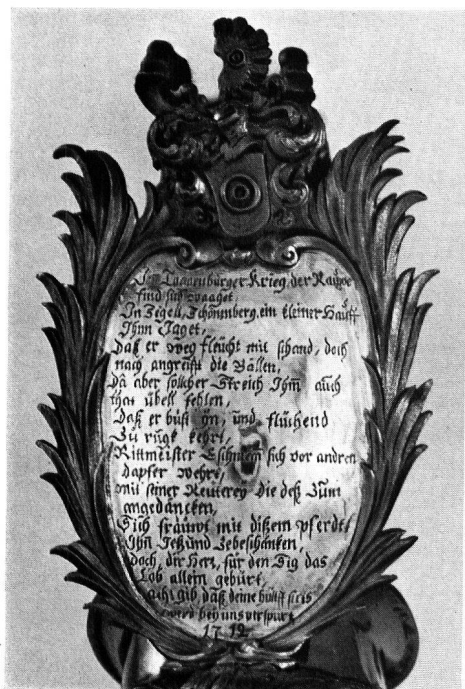 Im Toggenburger Krieg, der
find sich waaget,
In Zigell, Schönenberg, ein kleiner Hauff
Ihnn Jaget,
Daß er weg fleücht mit schand, doch
nach angreifft die Bällen,
Da aber solicher Streich Ihm auch
that übell fehlen,
Daß er büst yn, und fluchend
Zu rugk kehrt,
Rittmeister Eschmann sich vor andren
dapfer wehrt,
mit seiner Reuterey die deß Zunfft
angedäncken,
Sich fräuwt mit dißem pferdt
Ihn Jetzund Zebeschäncken,
doch, der Herr, für den Sig das
Lob allein gebürt,
ach gib daß deine hülff stets
werd bey uns verspürt
1712